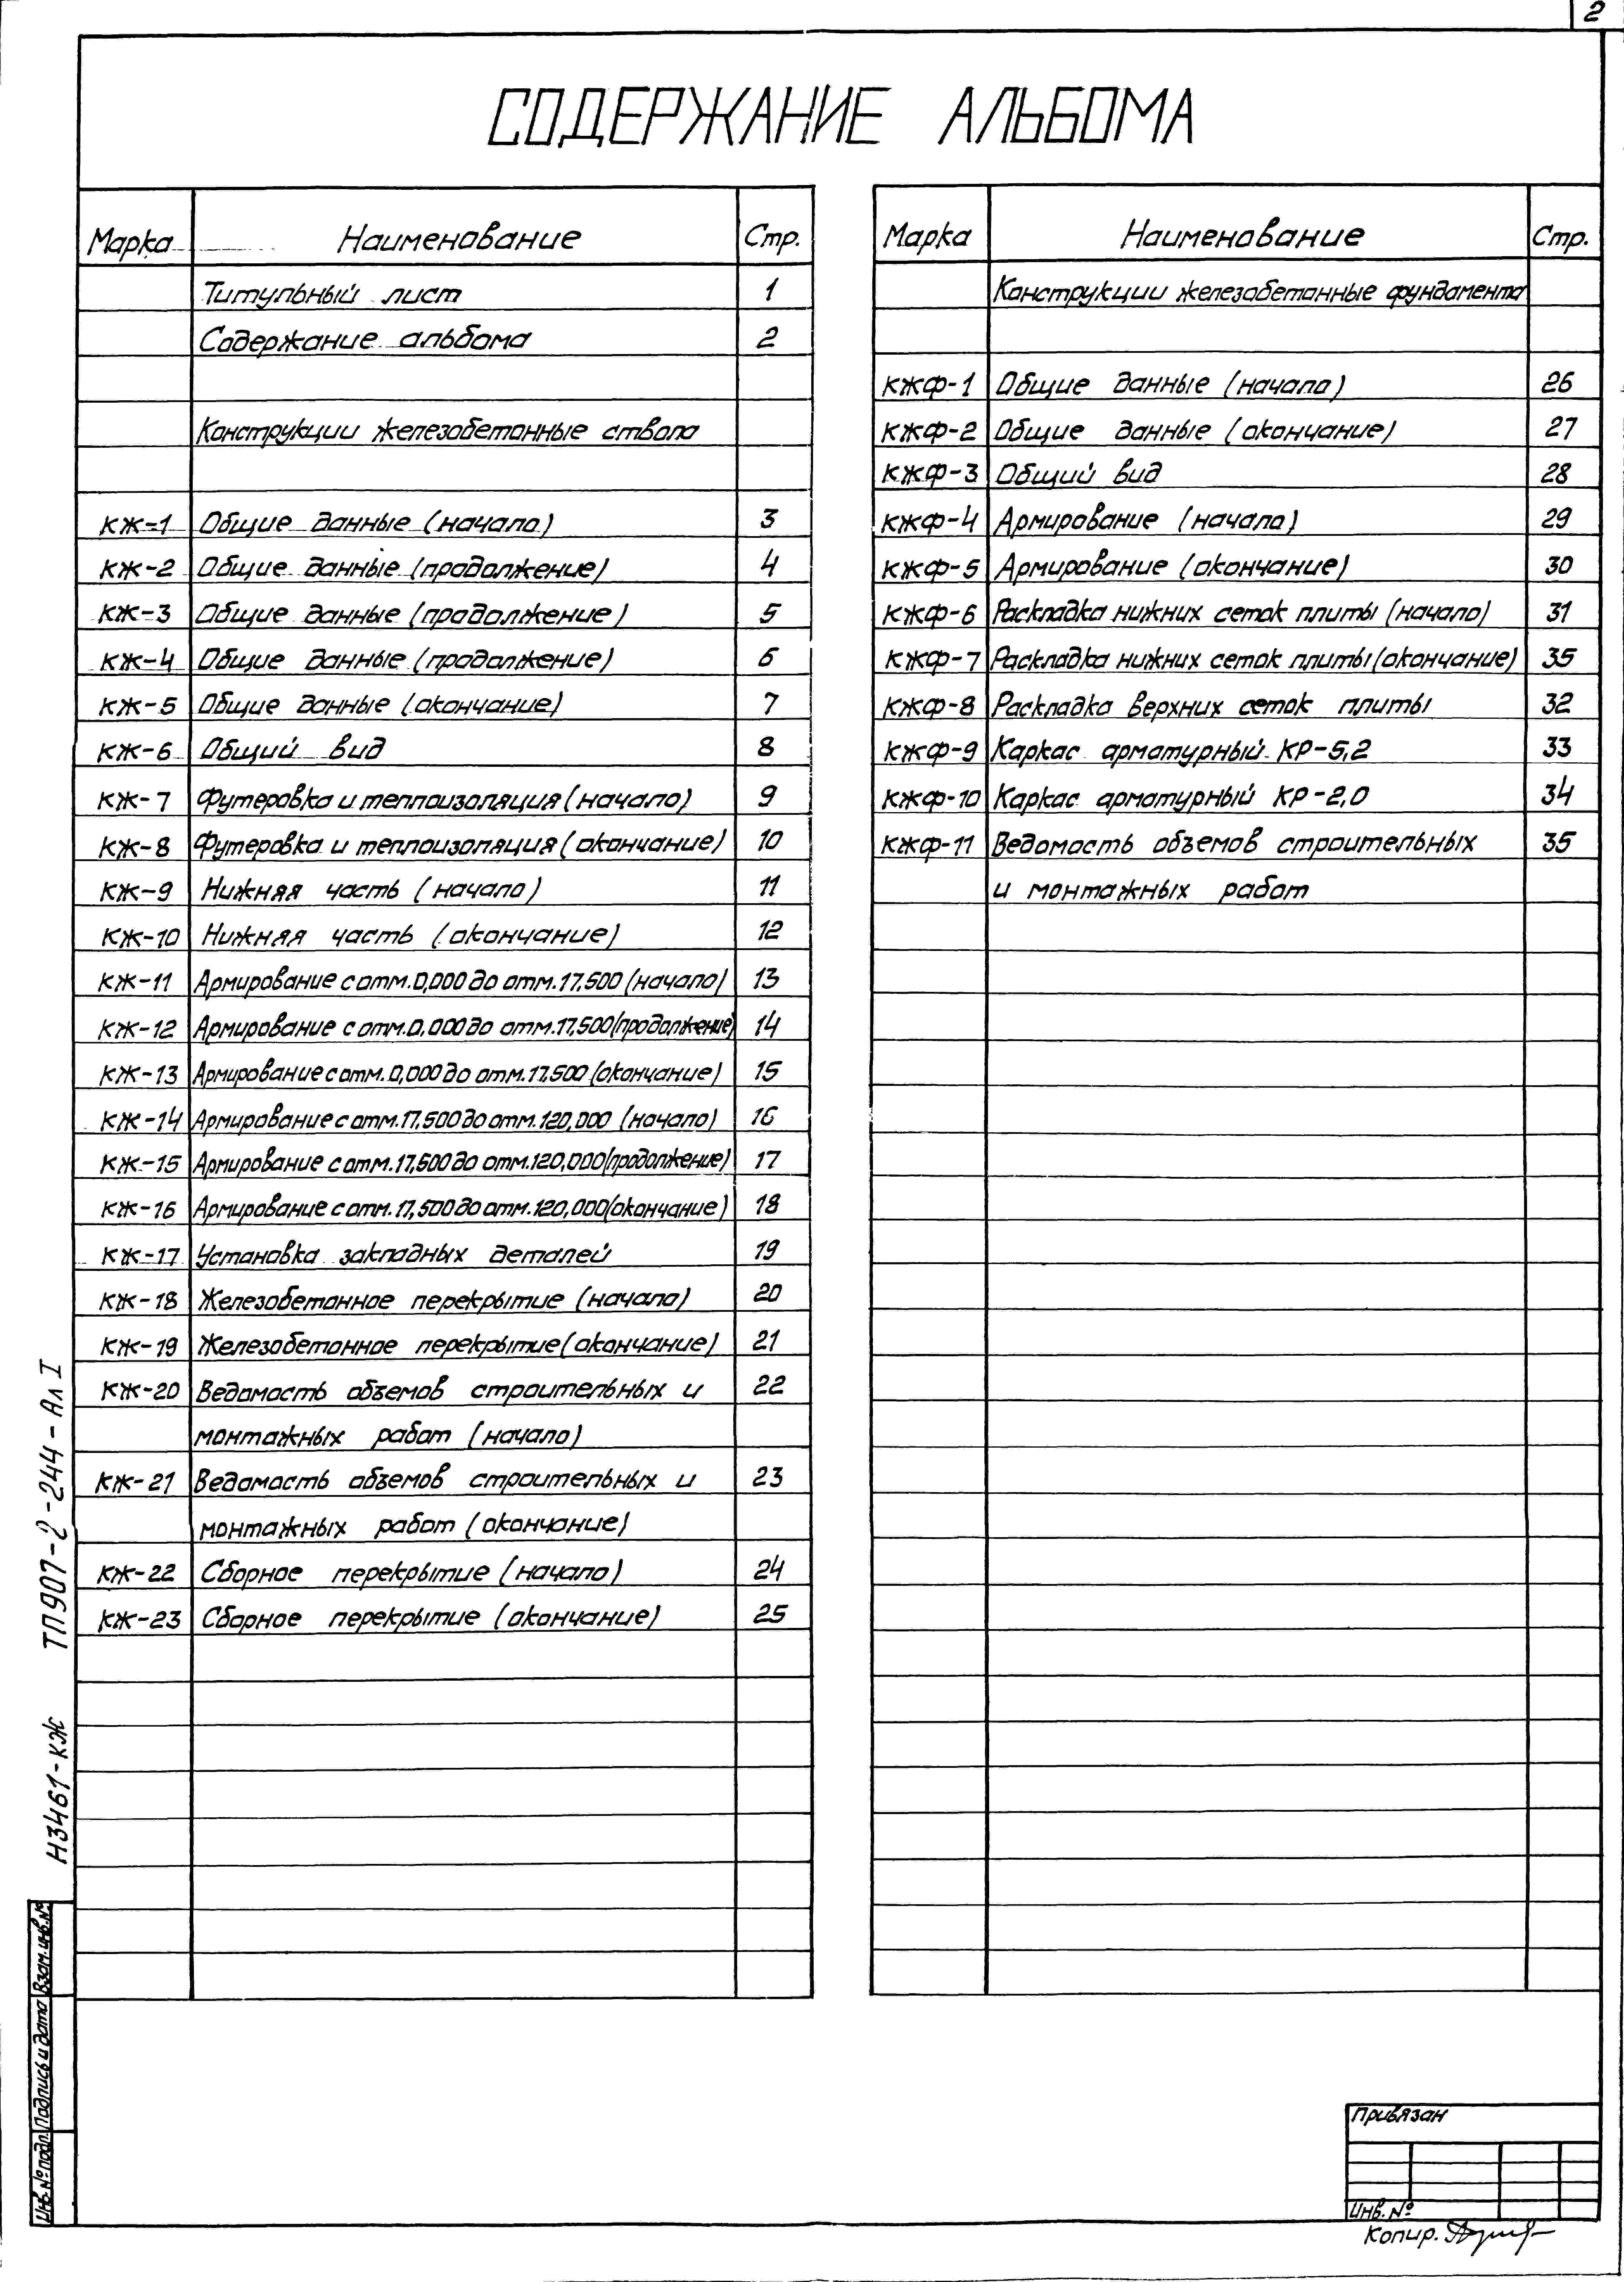 2
СОДЕРЖАНИЕ АЛЬБОМА
Марка Наименование Стр.
Титульный лист 1
Содержание альбома 2
Конструкции железобетонные ствола
КЖ-1 Общие данные (начало) 3
КЖ-2 Общие данные (продолжение) 4
КЖ-3 Общие данные (продолжение) 5
КЖ-4 Общие данные (продолжение) 6
КЖ-5 Общие данные (окончание) 7
КЖ-6 Общий вид 8
КЖ-7 Футеровка и теплоизоляция (начало) 9
КЖ-8 Футеровка и теплоизоляция (окончание) 10
КЖ-9 Нижняя часть (начало) 11
КЖ-10 Нижняя часть (окончание) 12
КЖ-11 Армирование с отм. 0,000 до отм. 17,500 (начало) 13
КЖ-12 Армирование с отм. 0,000 до отм. 17,500 (продолжение) 14
КЖ-13 Армирование с отм. 0,000 до отм. 17.500 (окончание) 15
КЖ-14 Армирование с отм. 17,500 до отм. 120,000 (начало) 16
КЖ-15 Армирование с отм. 17,500 до отм. 120,000 (продолжение) 17
КЖ-16 Армирование с отм. 17,500 до отм. 120,000 (окончание) 18
КЖ-17 Установка закладных деталей 19
КЖ-18 Железобетонное перекрытие (начало) 20
КЖ-19 Железобетонное перекрытие (окончание) 21
КЖ-20 Ведомость объемов строительных и 22
монтажных работ (начало)
КЖ-21 Ведомость объемов строительных и 23
монтажных работ (окончание)
КЖ-22 Сборное перекрытие (начало) 24
КЖ-23 Сборное перекрытие (окончание) 25
Марка Наименование Стр.
Конструкции железобетонные фундамента
КЖФ-1 Общие данные (начало) 26
КЖФ-2 Общие данные (окончание) 27
КЖФ-3 Общий вид 28
КЖФ-4 Армирование (начало) 29
КЖФ-5 Армирование (окончание) 30
КЖФ-6 Раскладка нижних сеток плиты (начало) 31
КЖФ-7 Раскладка нижних сеток плиты (окончание) 35
КЖФ-8 Раскладка верхних сеток плиты 32
КЖФ-9 Каркас арматурный КР-5,2 33
КЖФ-10 Каркас арматурный КР-2,0 34
КЖФ-11 Ведомость объемов строительных 35
и монтажных работ
ТП 907-2-244-Ал I
Н3461-КЖ
Взам. инв. №
Подпись и дата
Инв. № подл.
Привязан
Инв. №
Копир.